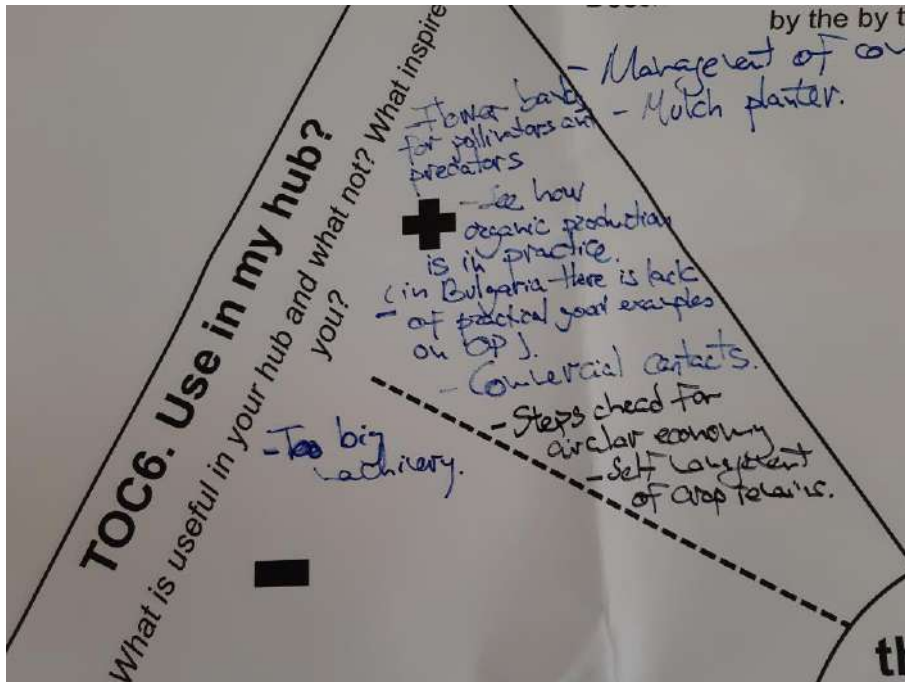 by the by t
TOC6. Use in my hub?
What is useful in your hub and what not? What inspire
you?
- Management of cov
- Mulch planter.
- Flower band
for pollinators and
predators
- See how
organic production
is in practice.
- (in Bulgaria there is lack
of practical good examples
on OP).
- Commercial contacts.
- Steps ahead for
circular economy
- Self
of crop remains.
- Too big
machinery.
th